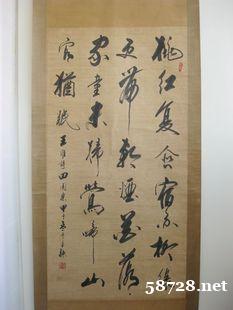 桃紅復含宿雨柳綠
更帶朝煙花落
家童未掃鶯啼山
客猶眠 王維詩田園樂
58728.net